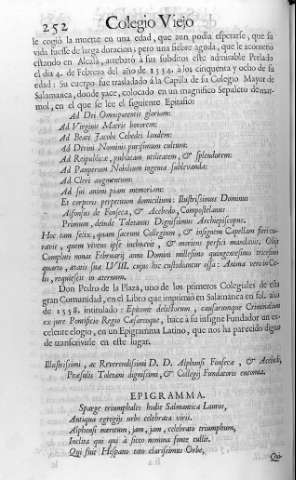 252 Colegio Viejo
le cogiò la muerte en una edad, que aun podia esperarse, que su
vida fuesse de larga duracion; pero una fiebre aguda, que le acometiò
estando en Alcalà, arrebatò à sus subditos este admirable Prelado
el dia 4. de Febrero del año de 1534. à los cinquenta y ocho de su
edad: Su cuerpo fue trasladado à la Capilla de su Colegio Mayor de
Salamanca, donde yace, colocado en un magnifico Sepulcro de mar-
mol, en el que se lee el siguiente Epitafio:
Ad Dei Omnipotentis gloriam:
Ad Virginis Matris honorem:
Ad Beati Jacobi Zebedei laudem:
Ad Divini Nominis purissimum cultum:
Ad Reipublicæ, publicam utilitatem, & splendorem:
Ad Pauperum Nobilium ingenia sublevanda:
Ad Cleri augmentum:
Ad sui animi piam memoriam:
Et corporis perpetuum domicilium: Illustrissimus Dominus
Alfonsus de Fonseca, & Acebedo, Compostellanus
Primum, deinde Toletanus Dignissimus Archiepiscopus.
Hoc tam felix, quam sacrum Collegium, & insignem Capellam fieri cu-
ravit, quem vivens ipse inchoavit, & moriens perfici mandavit. Obiit
Compluti nonas Februarij anno Domini millesimo quingentesimo trigesimo
quarto, ætatis suæ LVIII. cujus hic custodiuntur ossa: Anima vero in Cœ-
lis, requiescit in æternum.
Don Pedro de la Plaza, uno de los primeros Colegiales de esta
gran Comunidad, en el Libro que imprimiò en Salamanca en este año
de 1558. intitulado: Epitome delictorum, causarumque Criminalium
ex jure Pontificio Regio Cæsareoque, hace à su insigne Fundador un ex-
celente elogio, en un Epigramma Latino, que nos ha parecido digno
de transcrivirse en este lugar.
Illustrissimi, ac Reverendissimi D. D. Alphonsi Fonsecæ, & Acebedi,
Præsulis Toletani dignissimi, & Collegij Fundatoris encomia.
EPIGRAMMA.
Sparge triumphales hodie Salmantica Lauros,
Antiqua egregijs urbs celebrata viris.
Alphonsi meritum, jam, jam, celebrato triumphum,
Inclita qui qui à sicco nomina fonte tulit.
Qui fuit Hespano toto clarissimus Orbe,